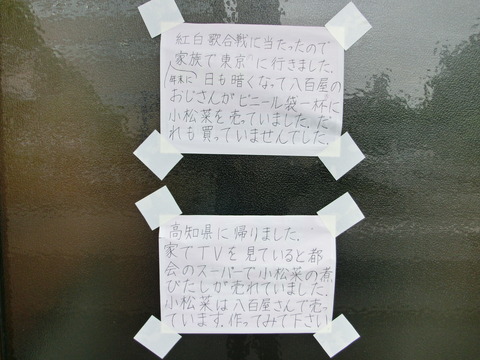 紅白歌合戦に当たったので
家族で東京に行きました。
年末に 日も暗くなって八百屋の
おじさんがビニール袋一杯に
小松菜を売っていました。だ
れも買っていませんでした。
高知県に帰りました。
家でTVを見ていると都
会のスーパーで小松菜の煮
びたしが売れていました。
小松菜は八百屋さんで売っ
ています。作ってみて下さい